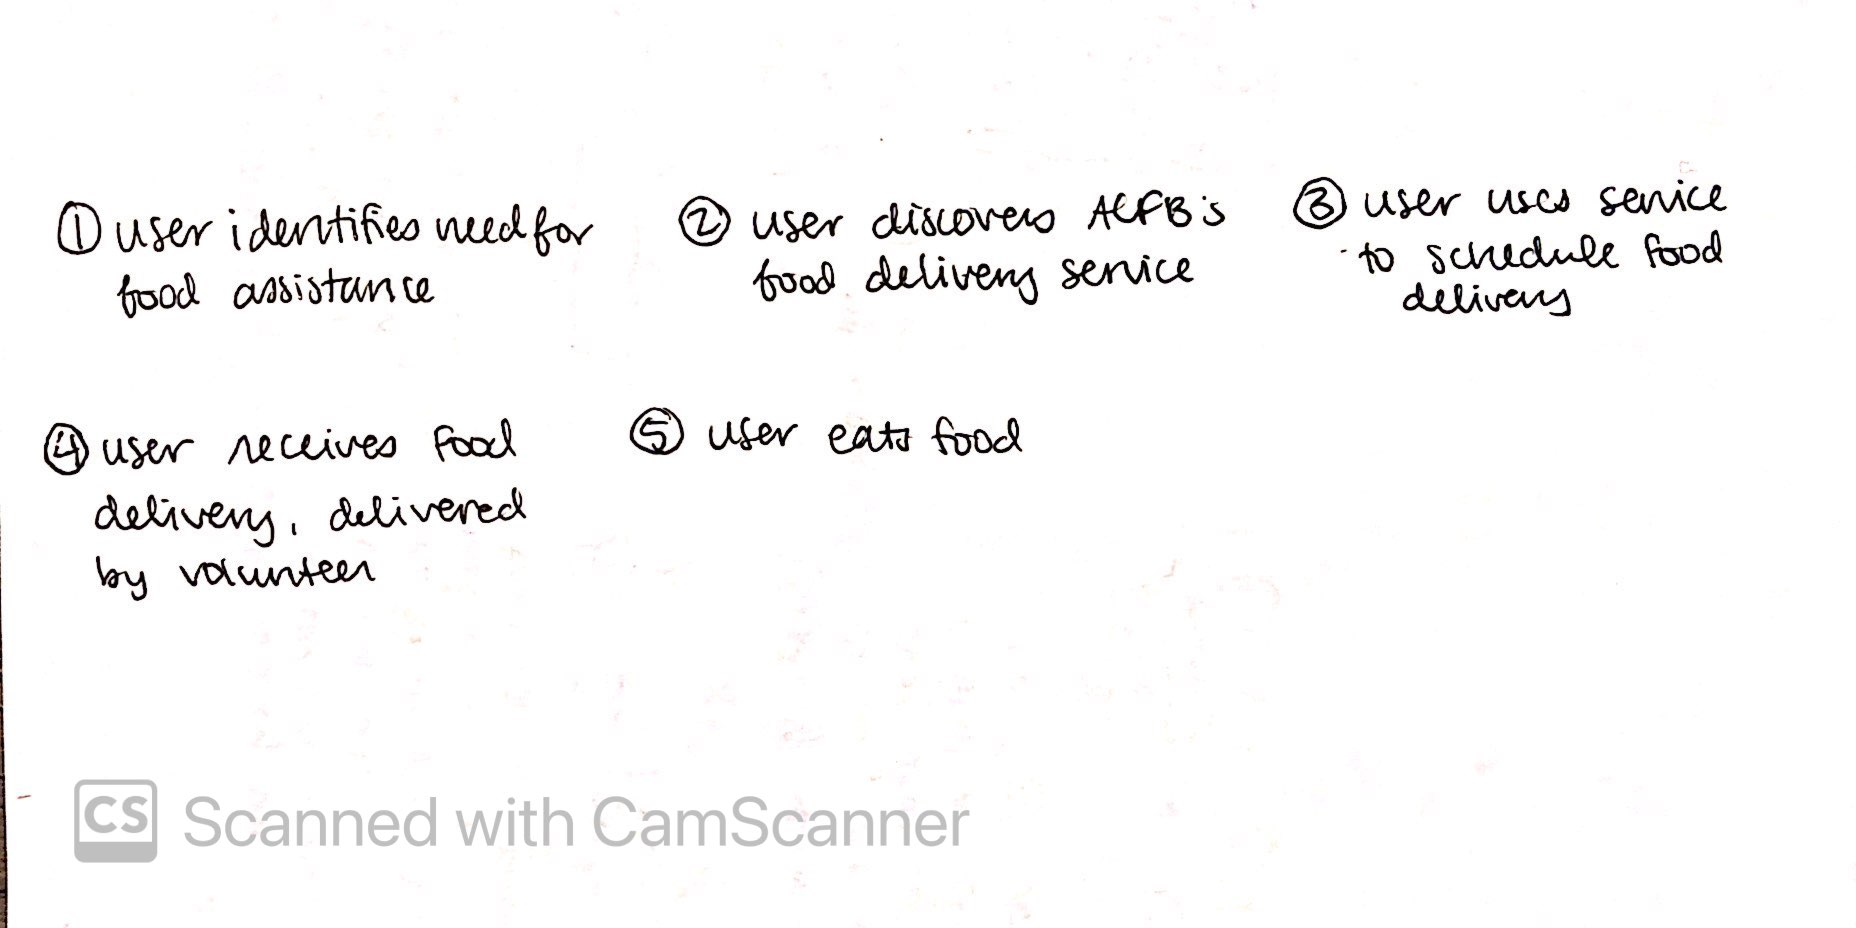 ① user identifies need for
food assistance
② user discovers ACFB's
food delivery service
③ user uses service
to schedule food
delivery
④ user receives food
delivery, delivered
by volunteer
⑤ user eats food
CS Scanned with CamScanner